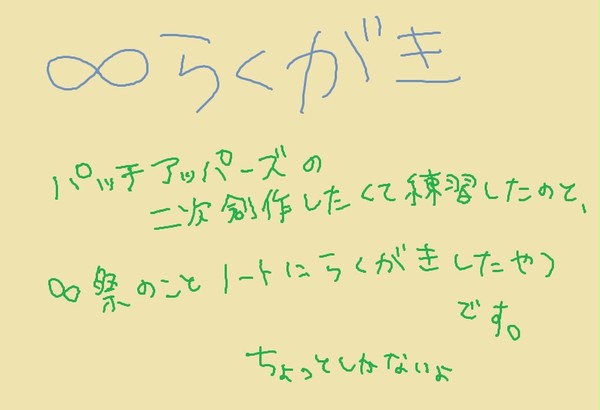 ∞らくがき
パッチアッパーズの
二次創作したくて練習したのと、
∞祭のことノートにらくがきしたやつ
です。
ちょっとしかないよ